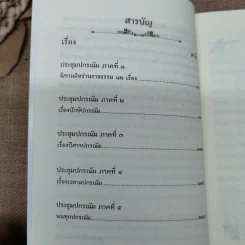 สารบัญ
เรื่อง
ประชุมปกรณัม ภาคที่ ๑
นิทานอิหร่านราชธรรม ๑๒ เรื่อง
ประชุมปกรณัม ภาคที่ ๒
เรื่องปักษีปกรณัม
ประชุมปกรณัม ภาคที่ ๓
เรื่องปีศาจปกรณัม
ประชุมปกรณัม ภาคที่ ๔
เรื่องเวตาลปกรณัม
ประชุมปกรณัม ภาคที่ ๕
นนทุกปกรณัม